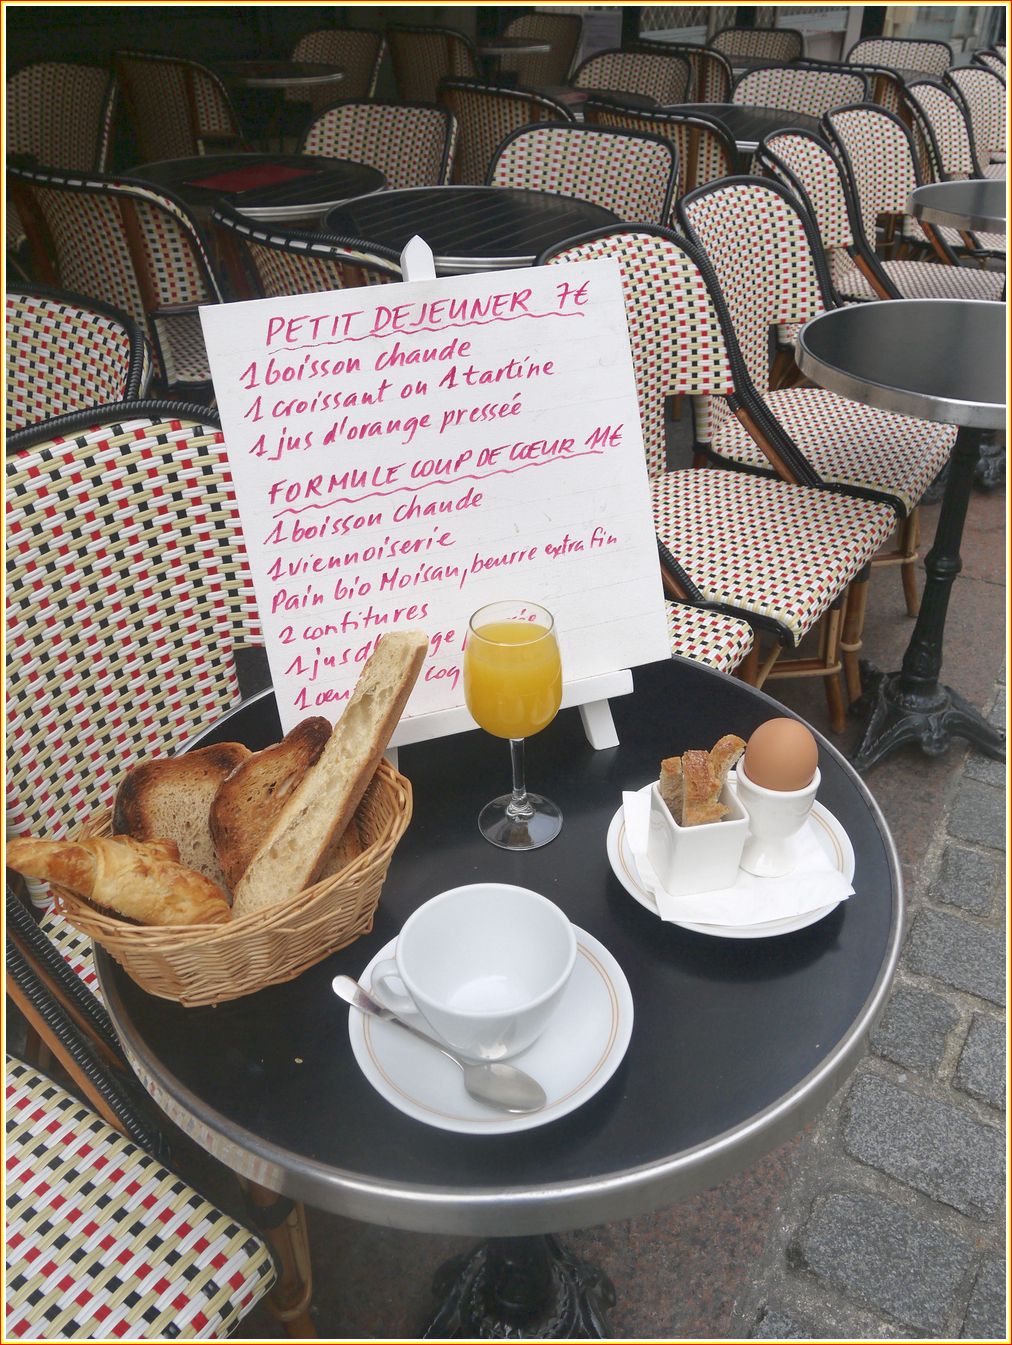 PETIT DEJEUNER 7€
1 boisson chaude
1 croissant ou 1 tartine
1 jus d'orange pressée
FORMULE COUP DE CŒUR 11€
1 boisson chaude
1 viennoiserie
Pain bio Moisan, beurre extra fin
2 confitures
1 jus
1